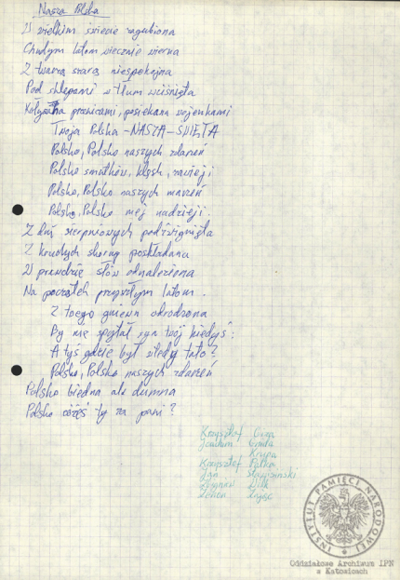 Nasza Polska
W wielkim świecie zagubiona
Chudym latom wiecznie wierna
Z twarzą szarą niespokojna
Pod sklepami w tłum wciśnięta
Kołysana przemocami, posiekana wojenkami
Twoja Polska - NASZA - ŚWIĘTA
Polsko, Polsko naszych zdarzeń
Polsko smutków, klęsk, nadziei
Polsko, Polsko naszych marzeń
Polsko, Polsko mej nadziei.
Z dni sierpniowych podźwignięta
Z krwawych skarg poskładana
W prawdzie słów odnaleziona
Na początek przyszłym latom.
Z tego gniewu odrodzona
By nie spytał syn twój kiedyś:
A tyś gdzie był wtedy tato?
Polsko, Polsko naszych zdarzeń
Polsko biedna ale dumna
Polsko cóżeś ty za pani?
Krzysztof
Joachim Gnida
Krupa
Krzysztof Pałka
Jan
Zbigniew
Zając
INSTYTUT PAMIĘCI NARODOWEJ
Oddziałowe Archiwum IPN
w Katowicach